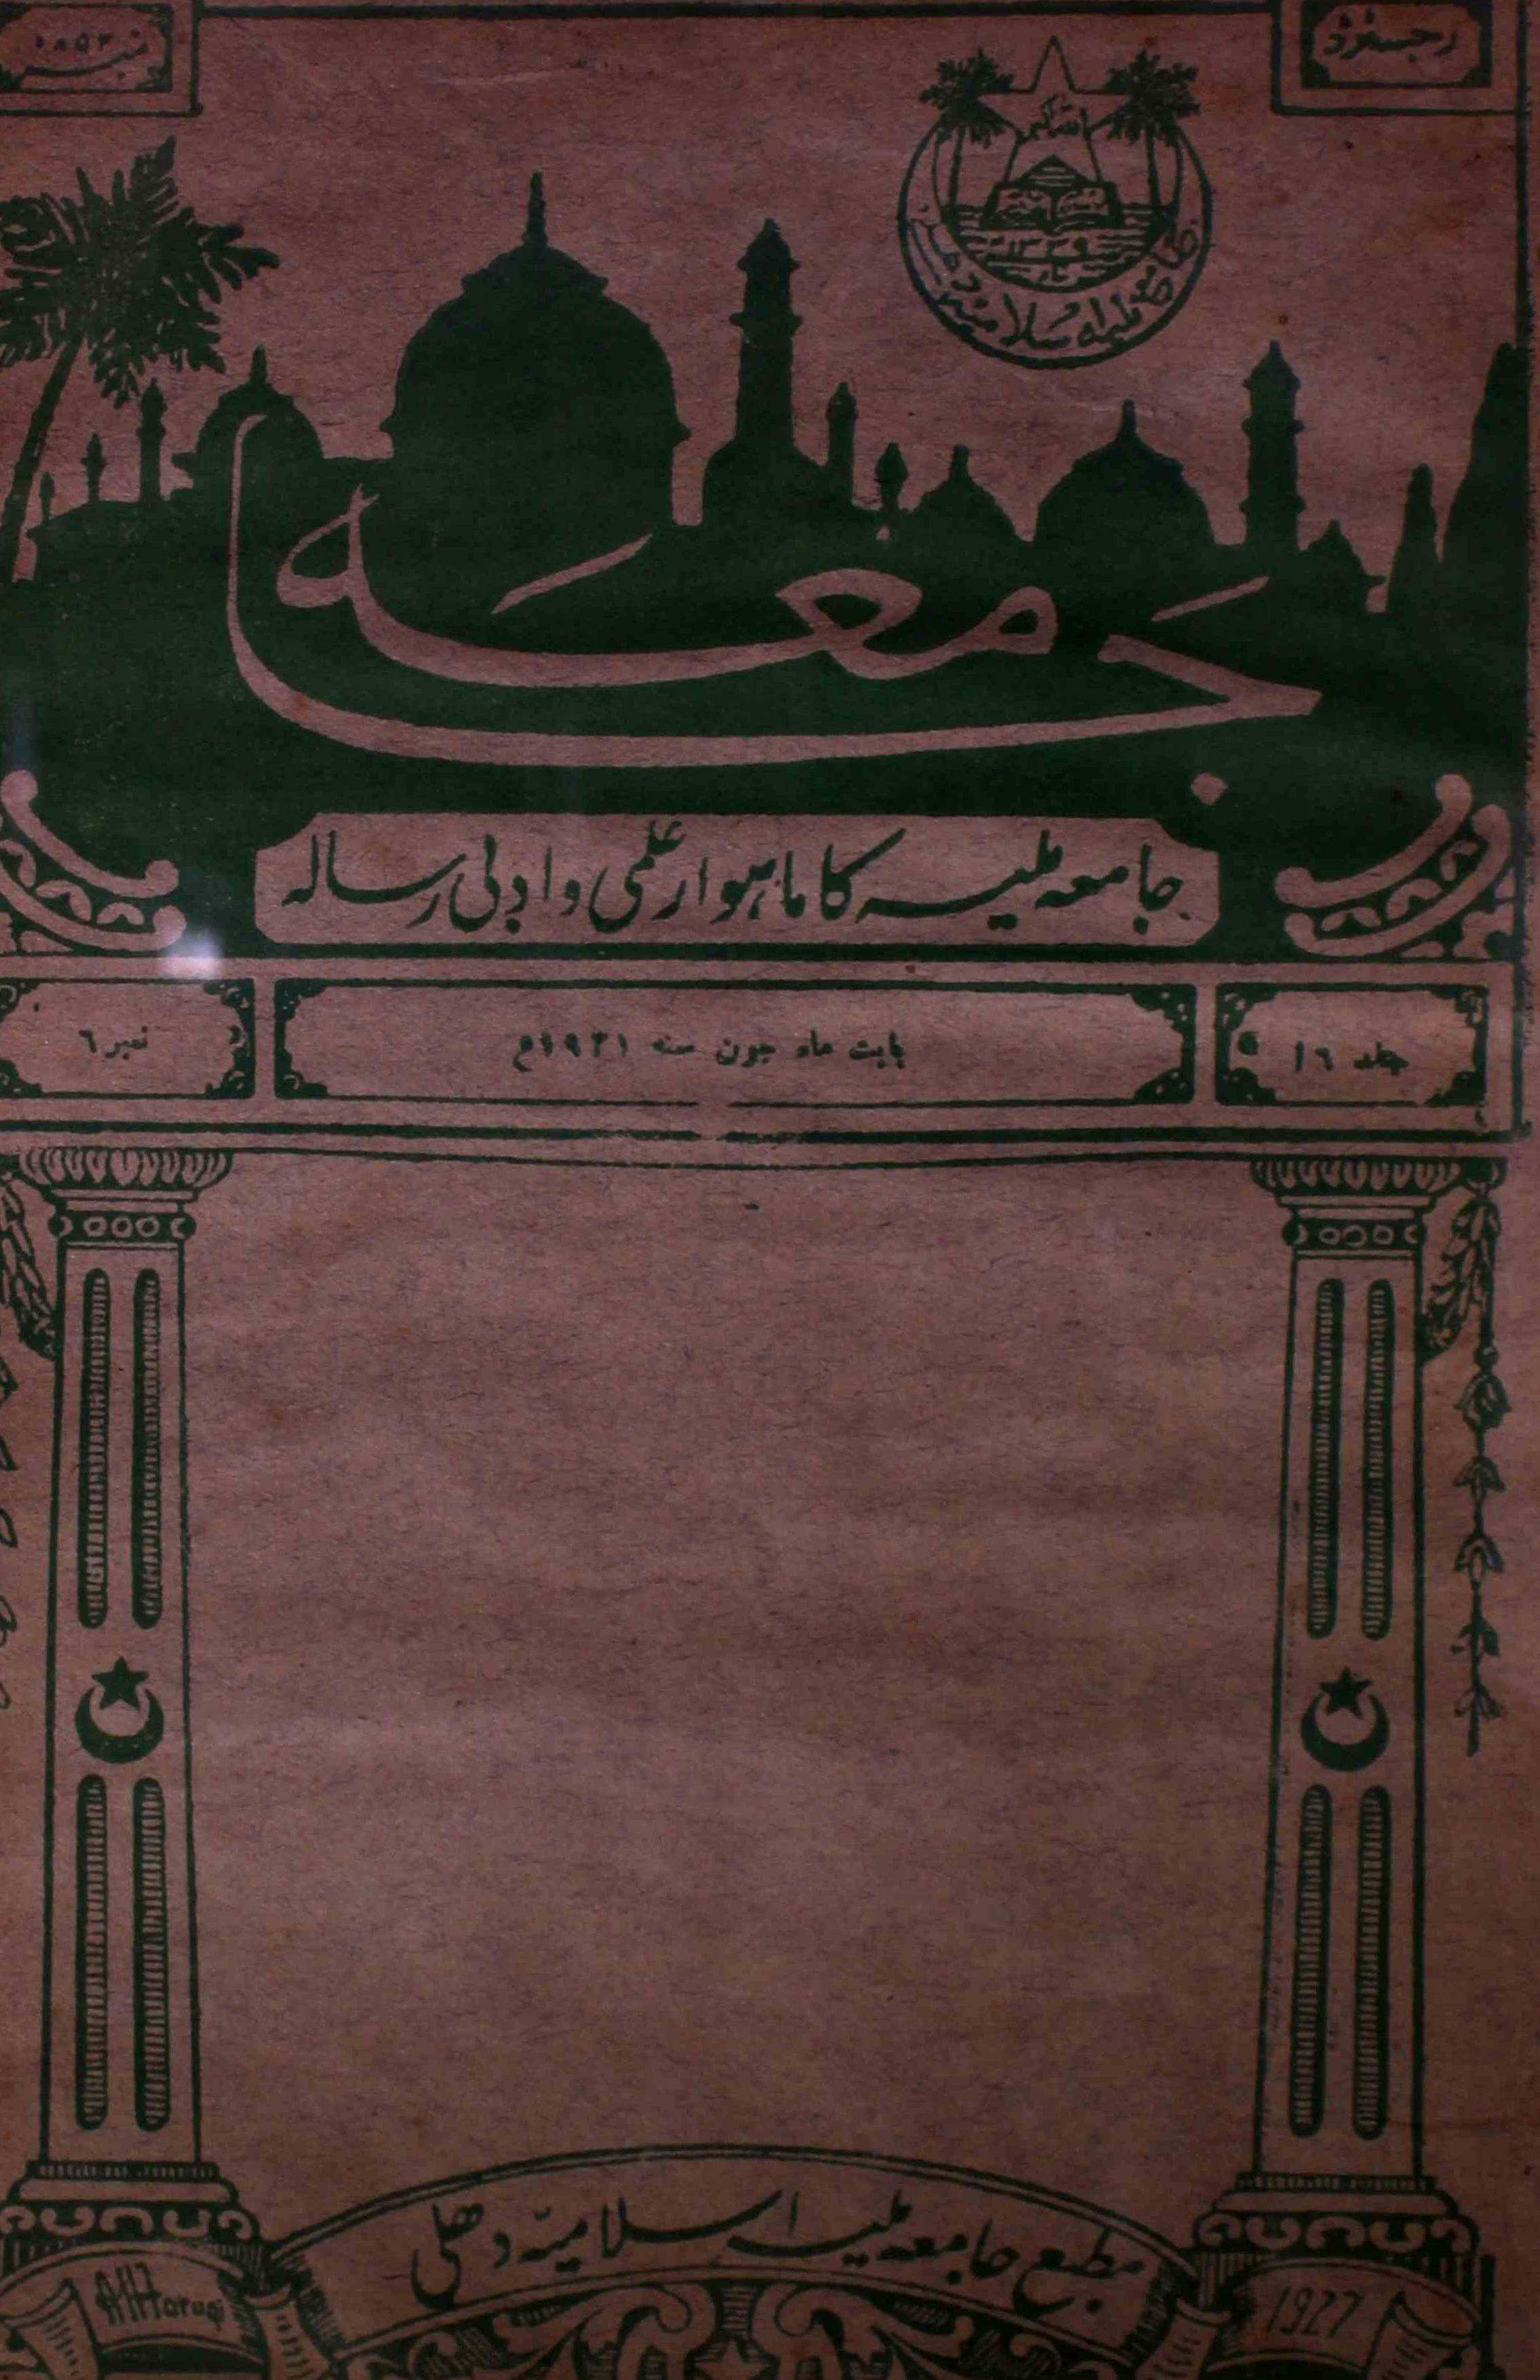 رجسٹرڈ
نمبر ۱۸۵۲
اللہ اکبر
۱۳۳۹
جامعہ ملیہ اسلامیہ دہلی
جامعہ
جامعہ ملیہ کا ماہوار علمی و ادبی رسالہ
جلد ۱۶
بابت ماہ جون سنہ ۱۹۳۱م
نمبر ۶
مطبع جامعہ ملیہ اسلامیہ دھلی
AHFaruqi
1927